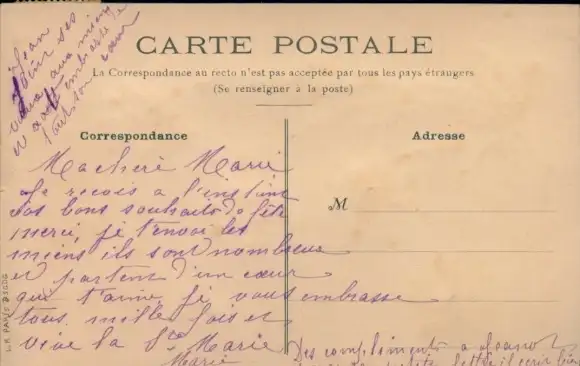 Jean
joint ses
vœux aux miens
et embrasse de
tout son cœur
CARTE POSTALE
La Correspondance au recto n'est pas acceptée par tous les pays étrangers
(Se renseigner à la poste)
Correspondance
Ma cheré Marie
Je reçois a l'instant
vos bons souhaits de fête
merci, je t'envoi les
miens ils sont nombreux
et partent d'un cœur
qui t'aime je vous embrasse
tous mille fois et
vive la Ste Marie
Marie
Adresse
M
Des compliments a Jeanot
lettre il ecrit bien